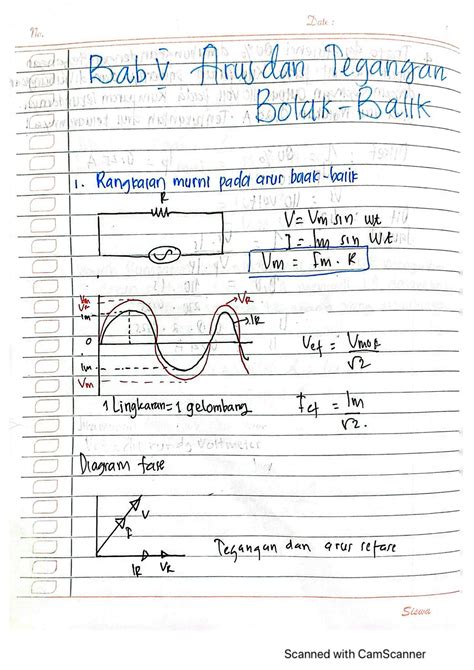 No.
Date :
Bab V Arus dan Tegangan
Bolak-Balik
1. Rangkaian murni pada arus baak-balik
R
V = Vm sin wt
I = Im sin wt
Vm = Im . R
Vm
VR
Im
0
Im
Vm
VR
IR
Vef = Vmax / √2
1 Lingkaran = 1 gelombang
Ief = Im / √2.
Diagram fase
V
I
IR VR
Tegangan dan arus sefase
Siswa
Scanned with CamScanner